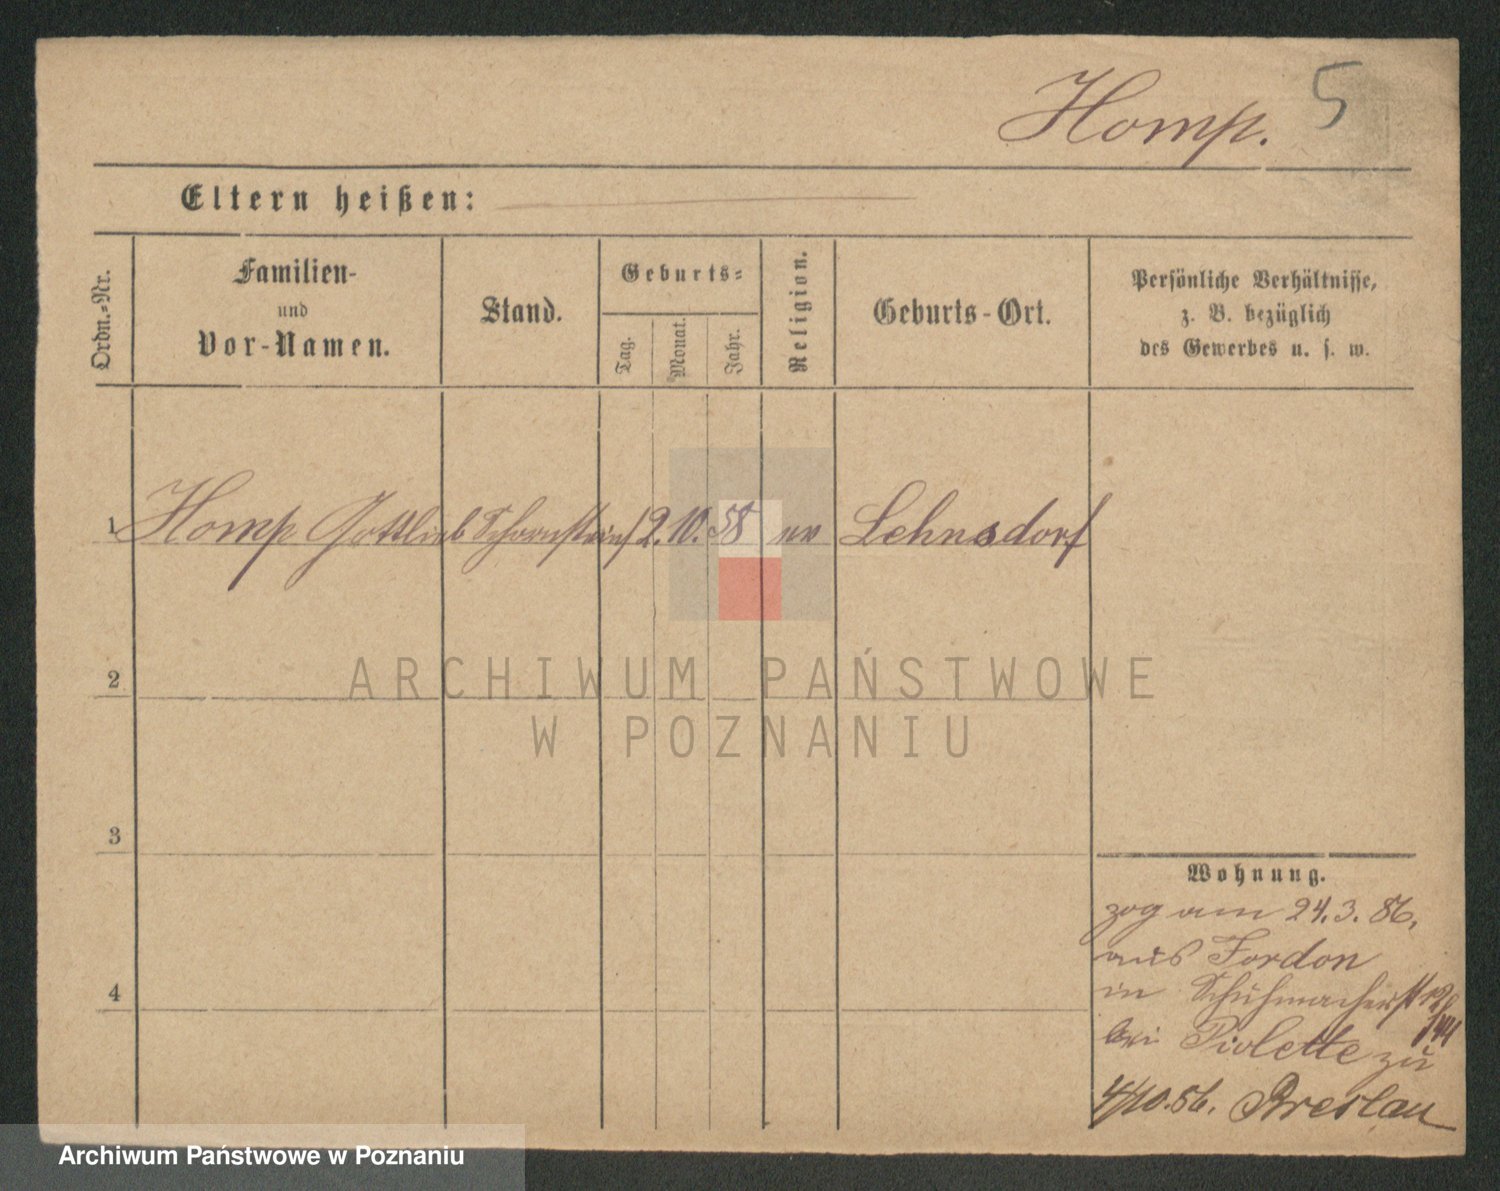 Homp. 5
Eltern heißen:
Ordn.-Nr.
Familien-
und
Vor-Namen.
Stand.
Geburts-
Tag.
Monat.
Jahr.
Religion.
Geburts-Ort.
Persönliche Verhältnisse,
z. B. bezüglich
des Gewerbes u. s. w.
1 Homp Gottlieb Schornsteinf 2. 10. 58 ev Lehnsdorf
2
3
4
Wohnung.
zog am 24.3.86.
aus Fordon
in Schuhmacherst 12
bei Piolette zu
4/10.86. Breslau
ARCHIWUM PAŃSTWOWE
W POZNANIU
Archiwum Państwowe w Poznaniu